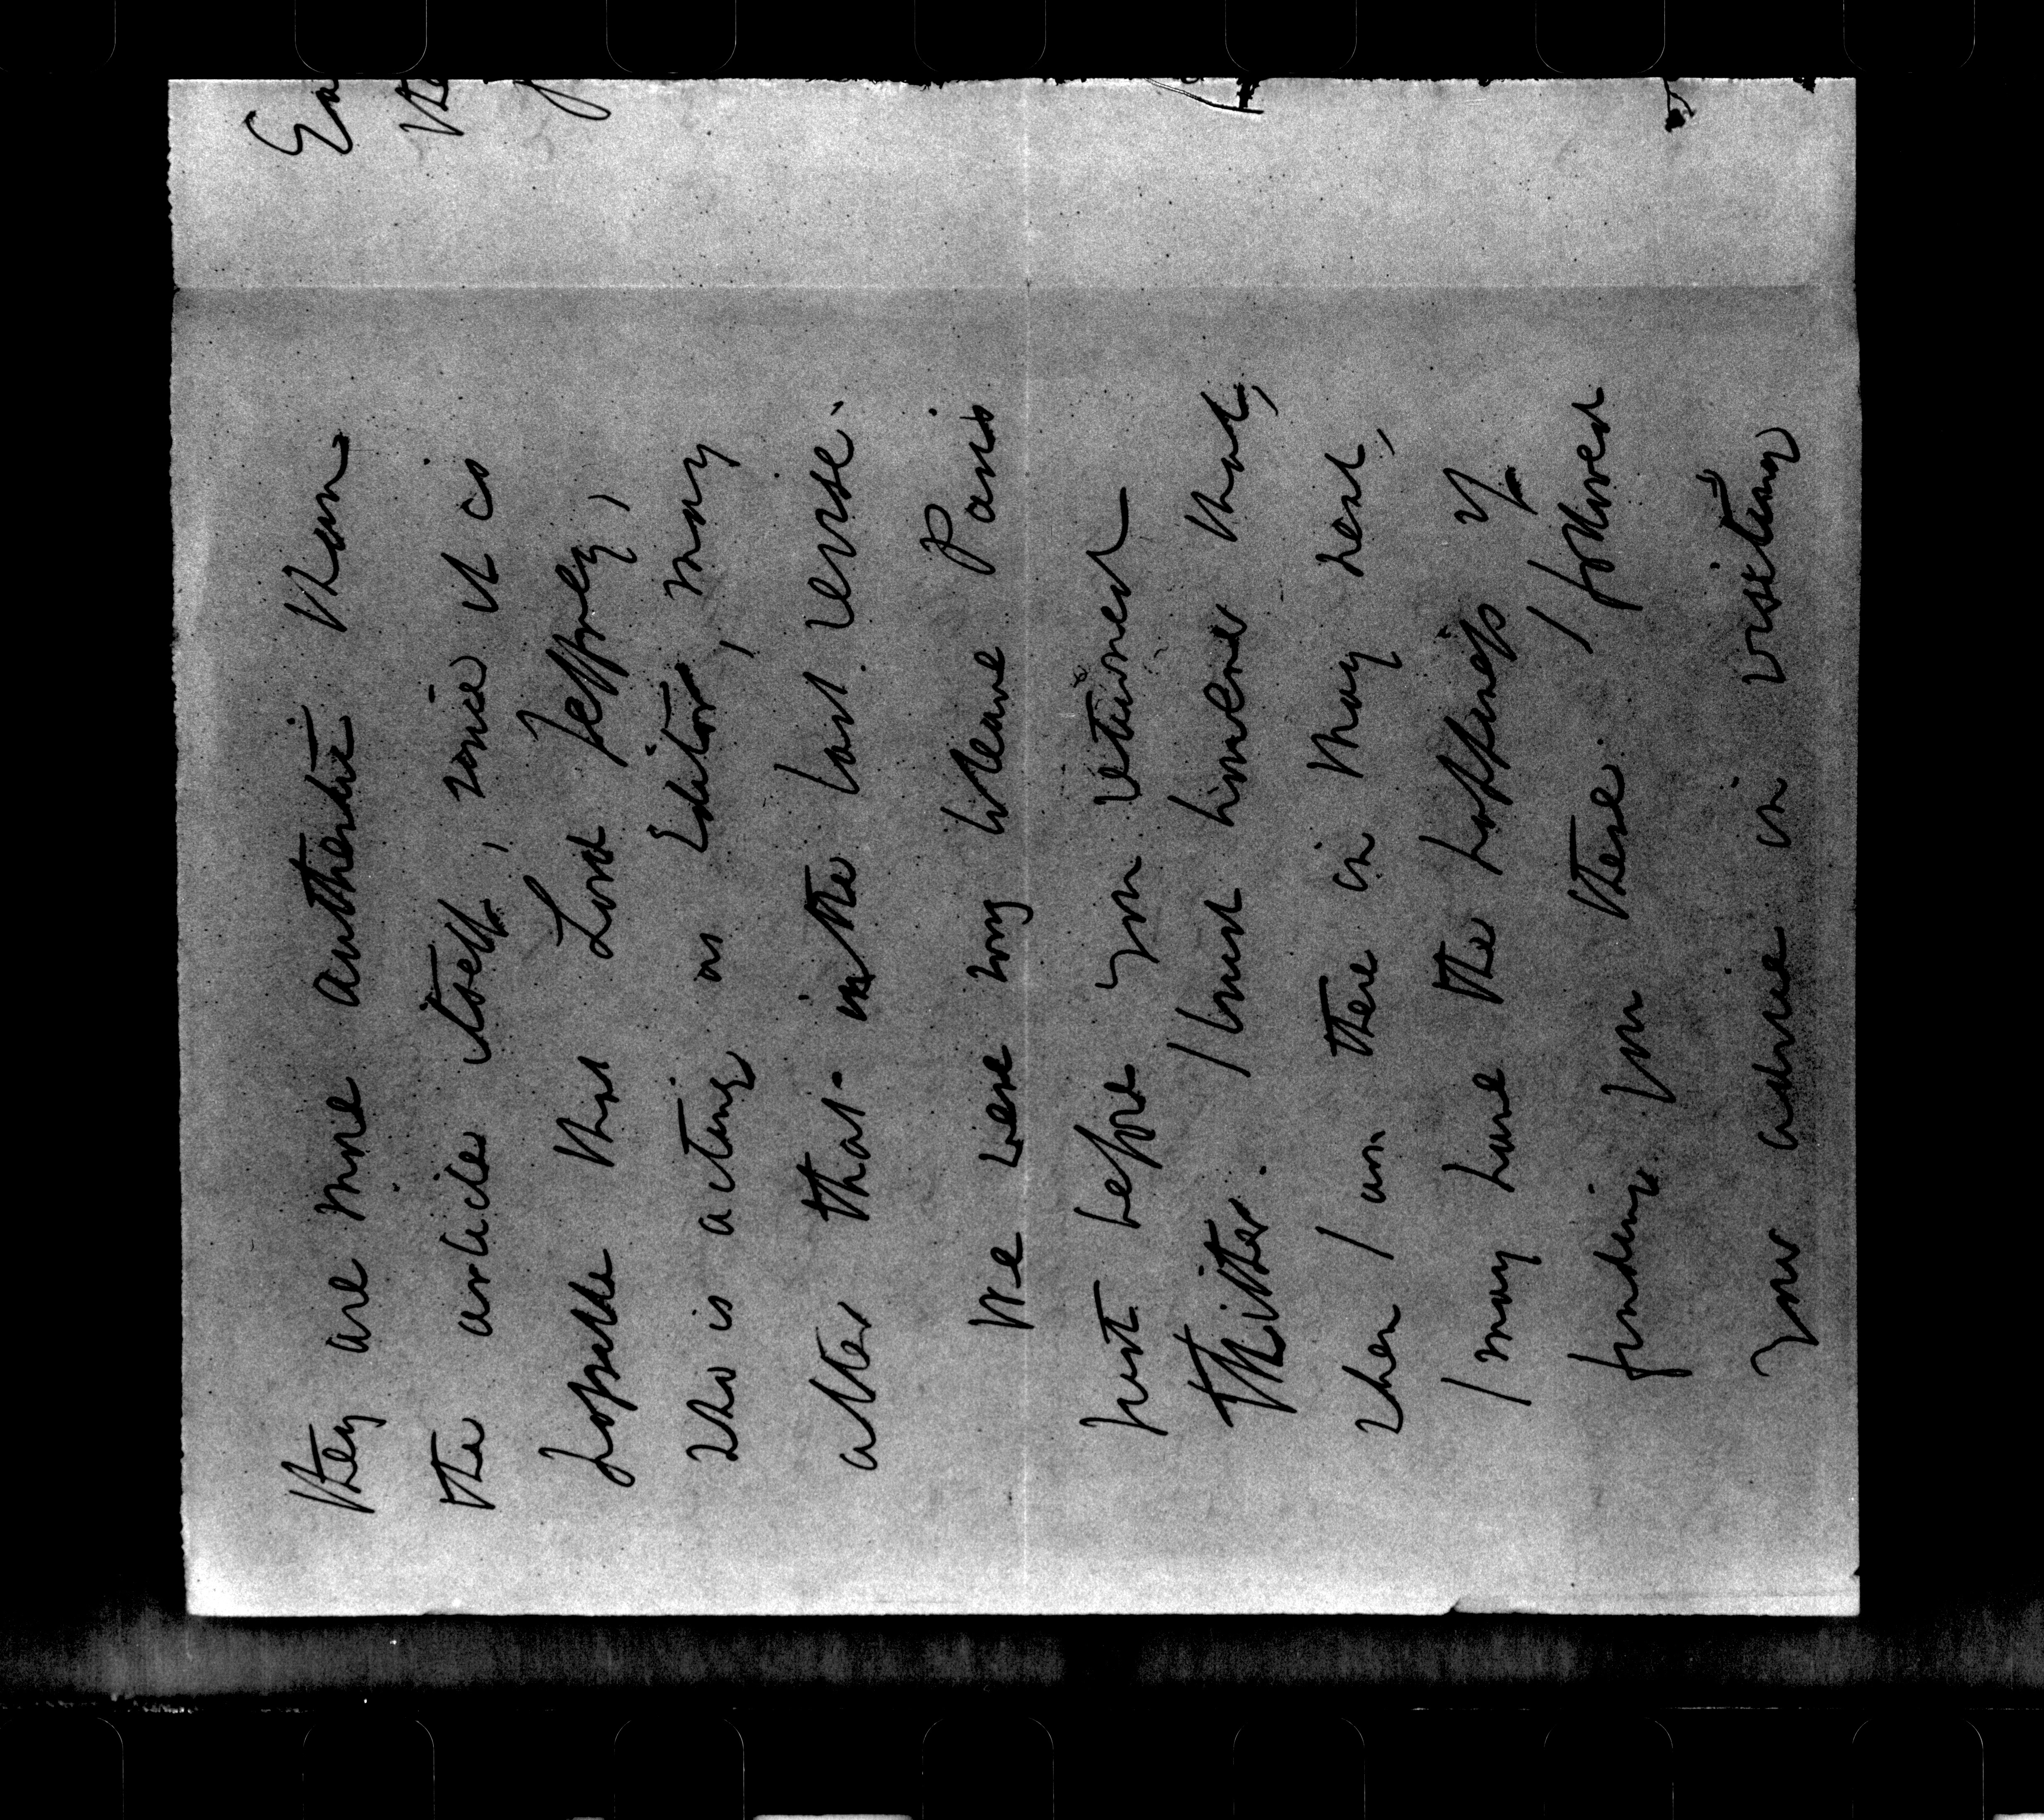 they are more authentic than
the article itself, since it is
possible that Lord Jeffrey,
who is acting as Editor, may
alter that in the last revise.
We were sorry to leave Paris
just before you returned
thither. I trust however that,
when I am there in May next,
I may have the happiness of
finding you there. I followed
your advice in visiting
En
the